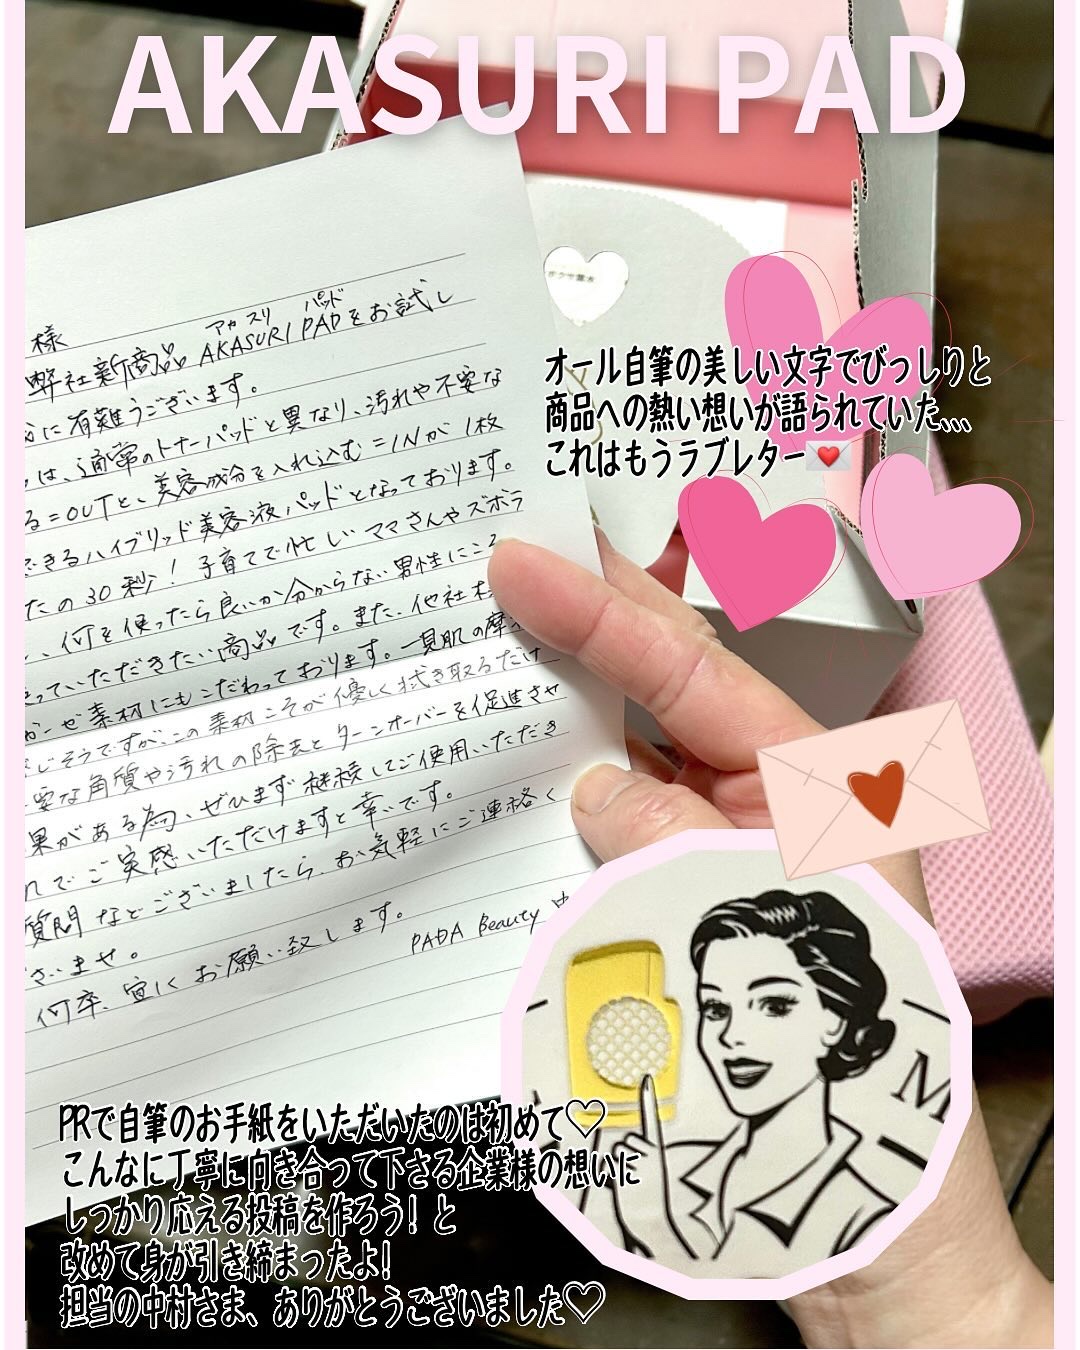 AKASURI PAD
様
弊社新商品 AKASURI PAD をお試し
アカ スリ パッド
に有難うございます。
は、通常のトナーパッドと異なり、汚れや不要な
る=OUTと、美容成分を入れ込む=INが1枚
できるハイブリッド美容液パッドとなっております。
たの30秒！子育てで忙しいママさんやズボラ
、何を使ったら良いか分からない男性にこそ
っていただきたい商品です。また、他社
ガーゼ素材にもこだわっております。一見肌の摩
じそうですが、この素材こそが優しく拭き取るだけ
要な角質や汚れの除去とターンオーバーを促進させ
果がある為、ぜひまず継続してご使用いただき
れでご実感いただけますと幸いです。
質問などございましたら、お気軽にご連絡く
さいませ。
何卒、宜しくお願い致します。
PADA Beauty 中
オール自筆の美しい文字でびっしりと
商品への熱い想いが語られていた、、、
これはもうラブレター💌
M
PRで自筆のお手紙をいただいたのは初めて♡
こんなに丁寧に向き合って下さる企業様の想いに
しっかり応える投稿を作ろう！と
改めて身が引き締まったよ！
担当の中村さま、ありがとうございました♡